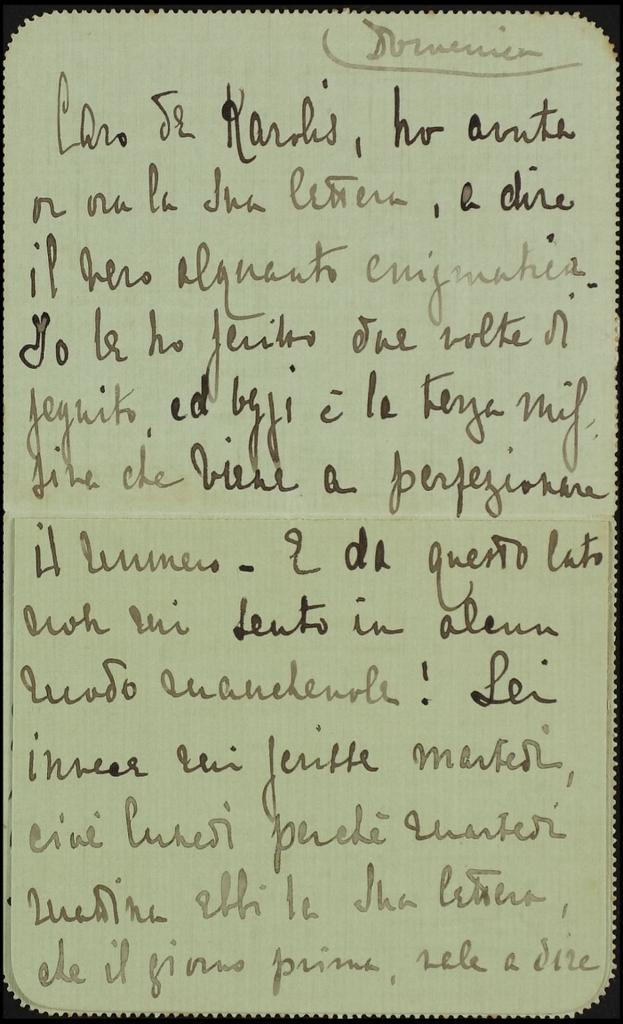 Domenica
Caro de Karolis, ho avuta
or ora la Sua lettera, a dire
il vero alquanto enigmatica.
Io le ho scritto due volte di
seguito, ed oggi è la terza mis-
siva che viene a perfezionare
il numero - E da questo lato
non mi sento in alcun
modo manchevole! Lei
invece mi scrisse martedì,
cioè lunedì perchè martedì
mattina ebbi la Sua lettera,
che il giorno prima, vale a dire